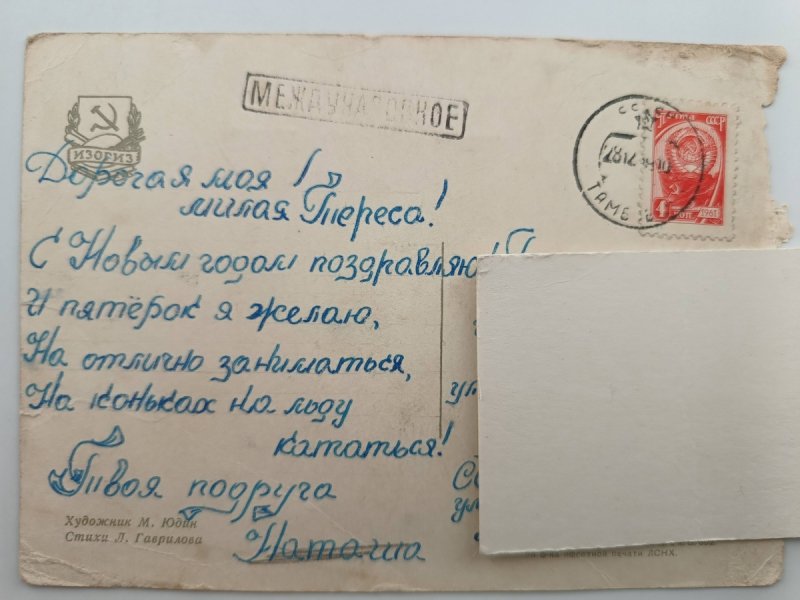 МЕЖДУНАРОДНОЕ
ИЗОГИЗ
СССР
ПОЧТА СССР
4 КОП. 1961
Дорогая моя
милая Тереса!
С Новым годом поздравляю!
И пятёрок я желаю,
На отлично заниматься,
На коньках на льду
кататься!
Твоя подруга
Наташа
Художник М. Юдин
Стихи Л. Гаврилова
печати ЛСНХ.